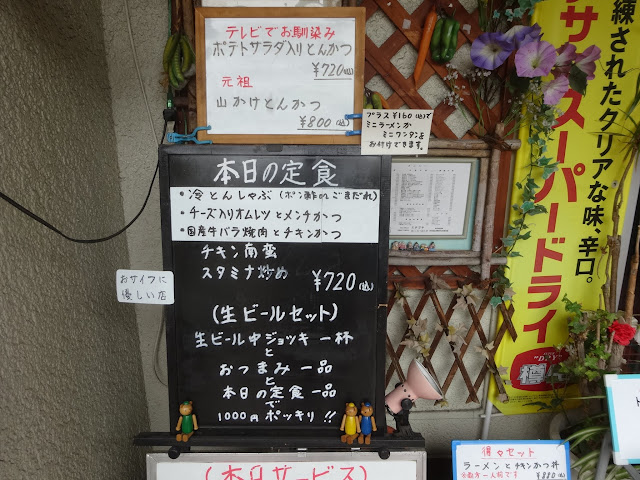 テレビでお馴染み
ポテトサラダ入りとんかつ
¥720(税込)
元祖
山かけとんかつ
¥800(込)
プラス¥160(込)で
ミニラーメンか
ミニワンタンを
お付けできます。
本日の定食
・冷とんしゃぶ(ポン酢orごまだれ)
・チーズ入りオムレツとメンチかつ
・国産牛バラ焼肉とチキンかつ
チキン南蛮
スタミナ炒め
¥720(込)
おサイフに
優しい店
(生ビールセット)
生ビール中ジョッキ一杯
と
おつまみ一品
と
本日の定食一品
で
1000円ポッキリ!!
(本日サービス)
得々セット
ラーメンとチキンかつ丼
¥880
されたクリアな味、辛口。
スーパードライ